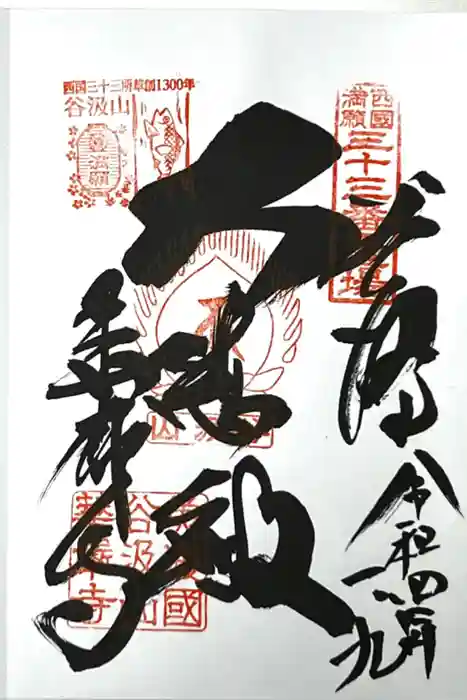 西国三十三所草創1300年
谷汲山
満願
西國
満願
三十三番霊場
奉拝
令和四年
大悲殿
谷汲山
華厳寺
美濃國
谷汲山
華嚴寺